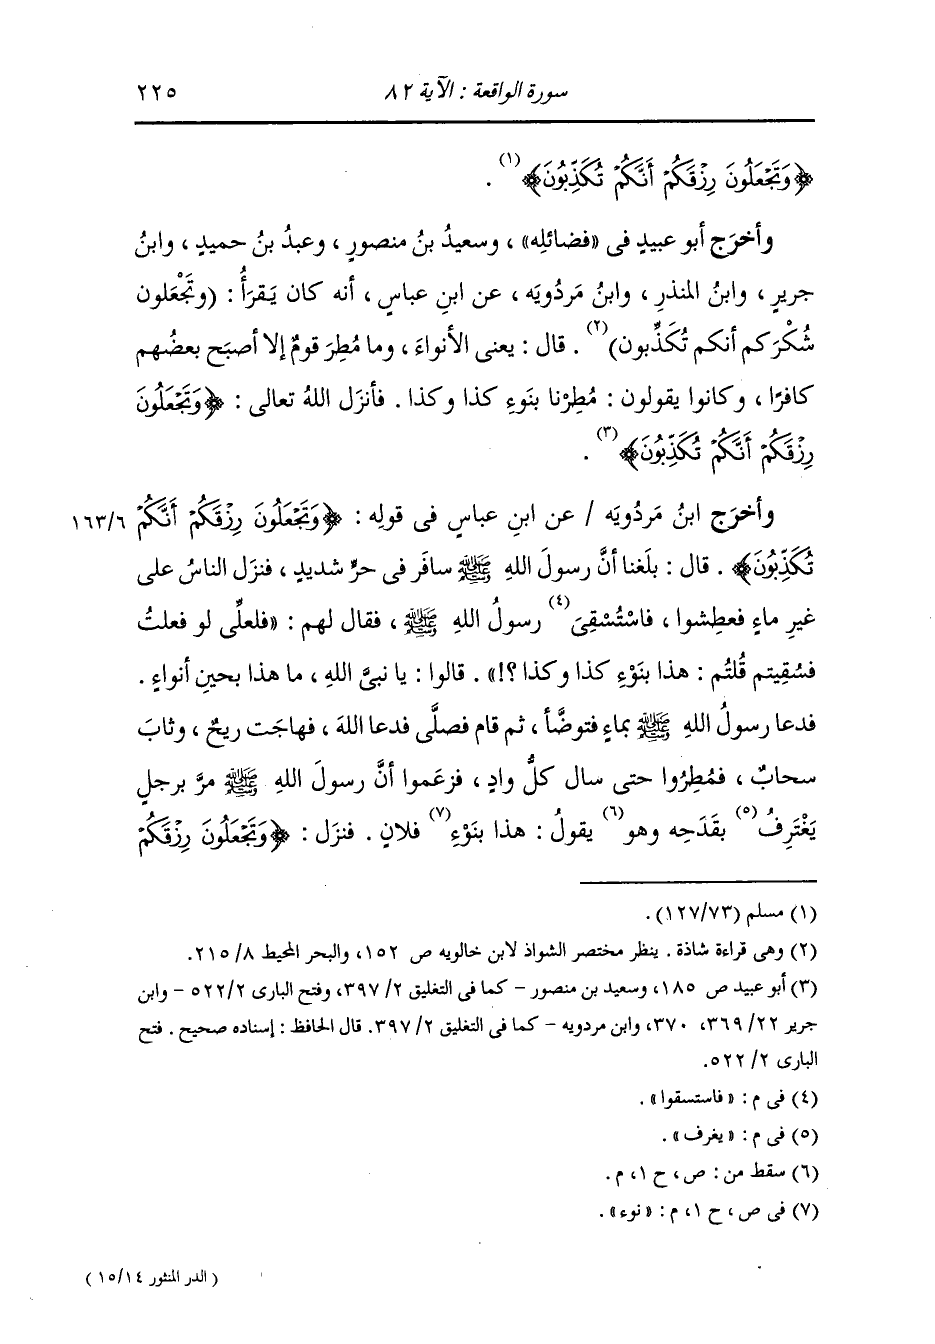 سورة الواقعة : الآية ٨٢ ٢٢٥
﴿وَتَجْعَلُونَ رِزْقَكُمْ أَنَّكُمْ تُكَذِّبُونَ﴾(١) .
وأخرَج أبو عبيدٍ فى «فضائلِه» ، وسعيدُ بنُ منصورٍ ، وعبدُ بنُ حميدٍ ، وابنُ
جريرٍ ، وابنُ المنذرِ ، وابنُ مَردويَه ، عن ابنِ عباسٍ ، أنه كان يَقرَأُ : (وتَجْعَلون
شُكْرَكم أنكم تُكَذِّبون)(٢) . قال : يعنى الأنواءَ ، وما مُطِرَ قومٌ إلا أصبَح بعضُهم
كافرًا ، وكانوا يقولون : مُطِرْنا بنَوءِ كذا وكذا . فأنزَل اللهُ تعالى : ﴿وَتَجْعَلُونَ
رِزْقَكُمْ أَنَّكُمْ تُكَذِّبُونَ﴾(٣) .
وأخرَج ابنُ مَردويَه / عن ابنِ عباسٍ فى قولِه : ﴿وَتَجْعَلُونَ رِزْقَكُمْ أَنَّكُمْ ١٦٣/٦
تُكَذِّبُونَ﴾ . قال : بلَغنا أنَّ رسولَ اللهِ ﷺ سافَر فى حرٍّ شديدٍ ، فنزَل الناسُ على
غيرِ ماءٍ فعطِشوا ، فاسْتُسْقِىَ(٤) رسولُ اللهِ ﷺ ، فقال لهم : «فلعلِّى لو فعلتُ
فسُقِيتم قُلتُم : هذا بنَوْءِ كذا وكذا ؟!» . قالوا : يا نبىَّ اللهِ ، ما هذا بحينِ أنواءٍ .
فدعا رسولُ اللهِ ﷺ بماءٍ فتوضَّأ ، ثم قام فصلَّى فدعا اللهَ ، فهاجَت ريحٌ ، وثابَ
سحابٌ ، فمُطِرُوا حتى سال كلُّ وادٍ ، فزعَموا أنَّ رسولَ اللهِ ﷺ مرَّ برجلٍ
يَغْتَرِفُ(٥) بقَدَحِه وهو(٦) يقولُ : هذا بنَوْءِ(٧) فلانٍ . فنزَل : ﴿وَتَجْعَلُونَ رِزْقَكُمْ
(١) مسلم (١٢٧/٧٣) .
(٢) وهى قراءة شاذة . ينظر مختصر الشواذ لابن خالويه ص ١٥٢، والبحر المحيط ٨/ ٢١٥.
(٣) أبو عبيد ص ١٨٥، وسعيد بن منصور - كما فى التغليق ٢/ ٣٩٧، وفتح البارى ٥٢٢/٢ - وابن
جرير ٢٢/ ٣٦٩، ٣٧٠، وابن مردويه - كما فى التغليق ٢/ ٣٩٧. قال الحافظ : إسناده صحيح . فتح
البارى ٢/ ٥٢٢.
(٤) فى م : «فاستسقوا» .
(٥) فى م : «يغرف» .
(٦) سقط من : ص ، ح ١، م .
(٧) فى ص ، ح ١، م : «نوء» .
( الدر المنثور ١٥/١٤ )